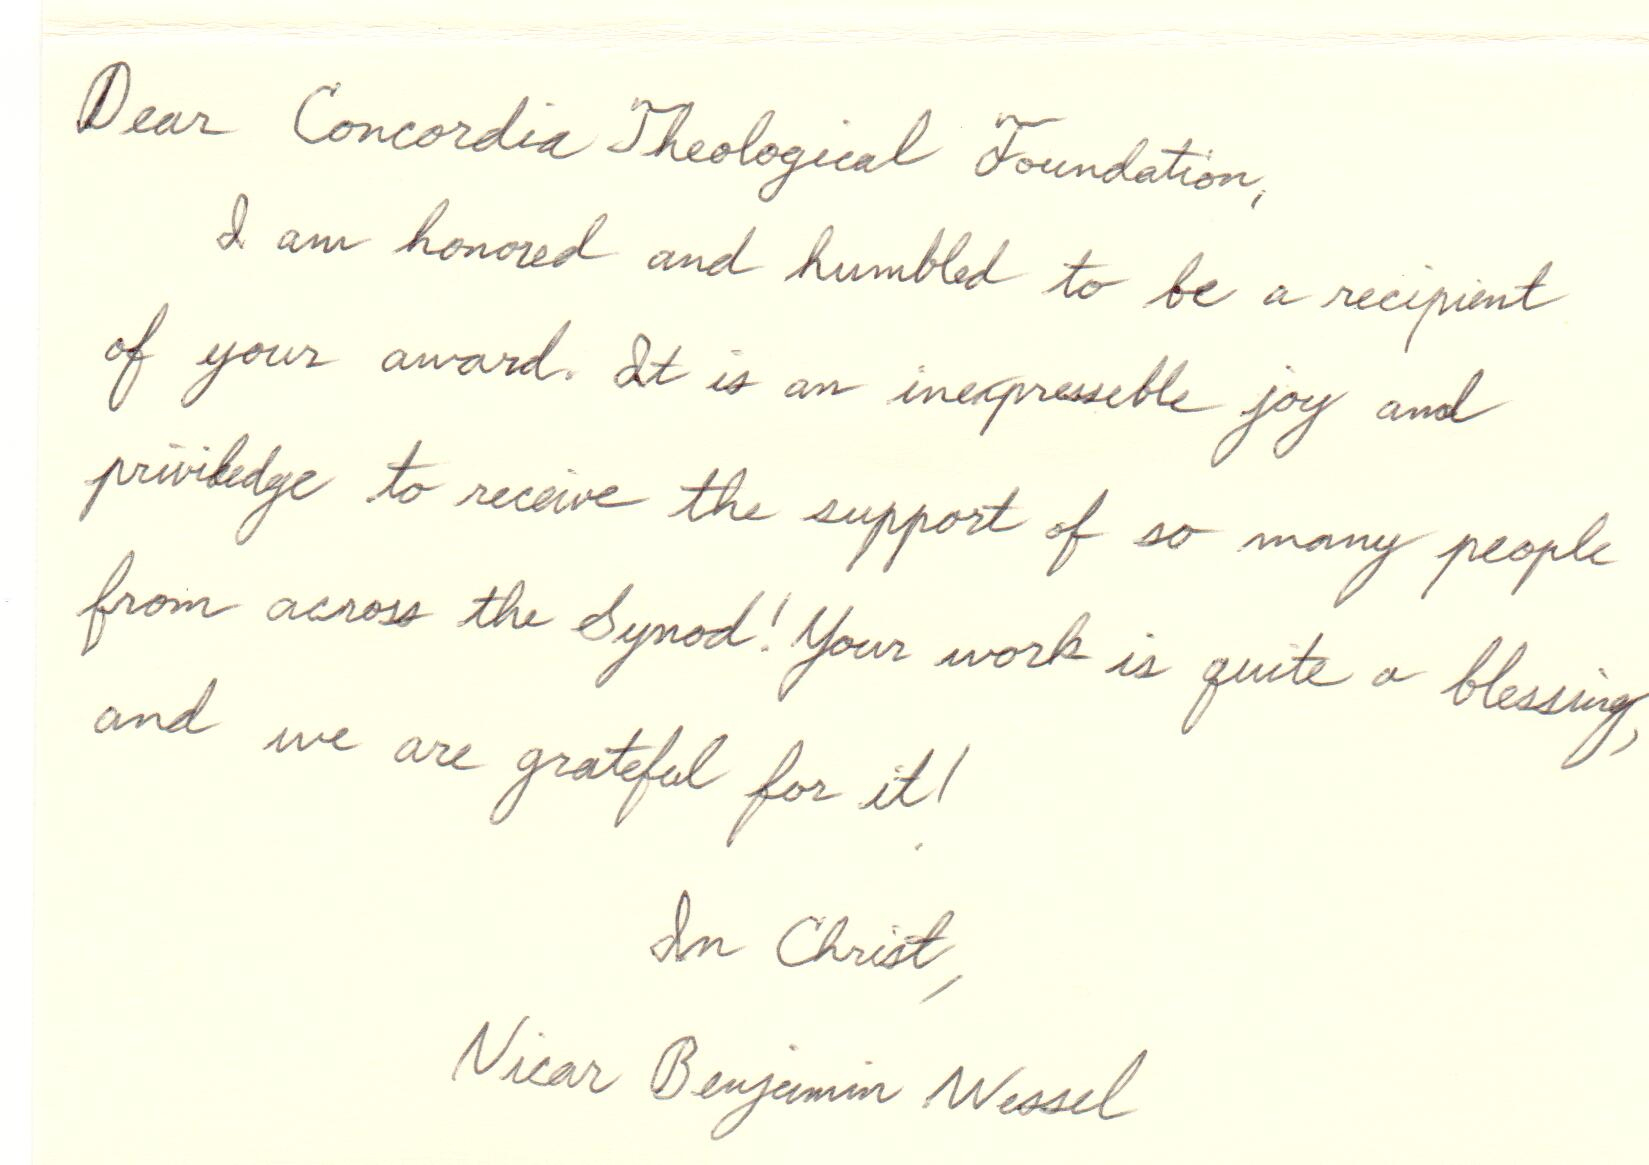 Dear Concordia Theological Foundation,
I am honored and humbled to be a recipient
of your award. It is an inexpressible joy and
priviledge to receive the support of so many people
from across the Synod! Your work is quite a blessing,
and we are grateful for it!
In Christ,
Vicar Benjamin Wessel